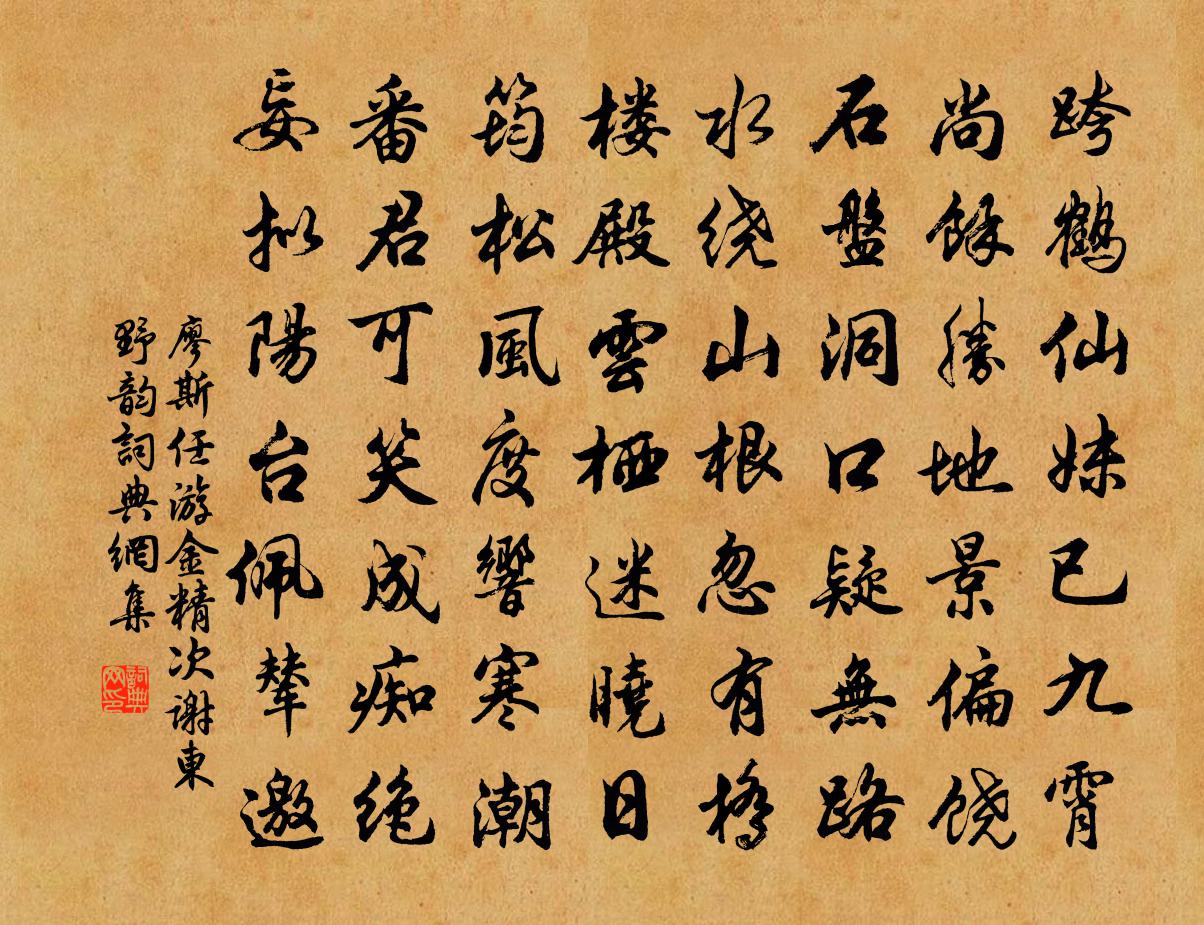 跨鹤仙妹已九霄
尚餘勝地景偏饶
石盤洞口疑無路
水绕山根忽有橋
楼殿雲栖迷曉日
筠松風度響寒潮
番君可笑成痴绝
妄拟陽台佩辇邀
廖斯任游金精次謝東
野韵詞典網集
詞典網印